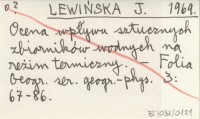 0.2
LEWIŃSKA J. 1969.
Ocena wpływu sztucznych
zbiorników wodnych na
reżim termiczny. — Folia
Geogr. ser. geogr.-phys. 3:
67-86.